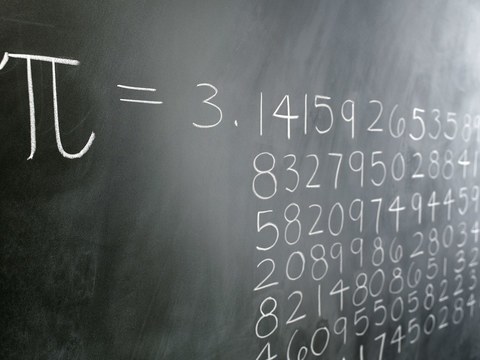 π = 3.141592653589
832795028841
582097494459
208998628034
821480865132
460955058223
17450284